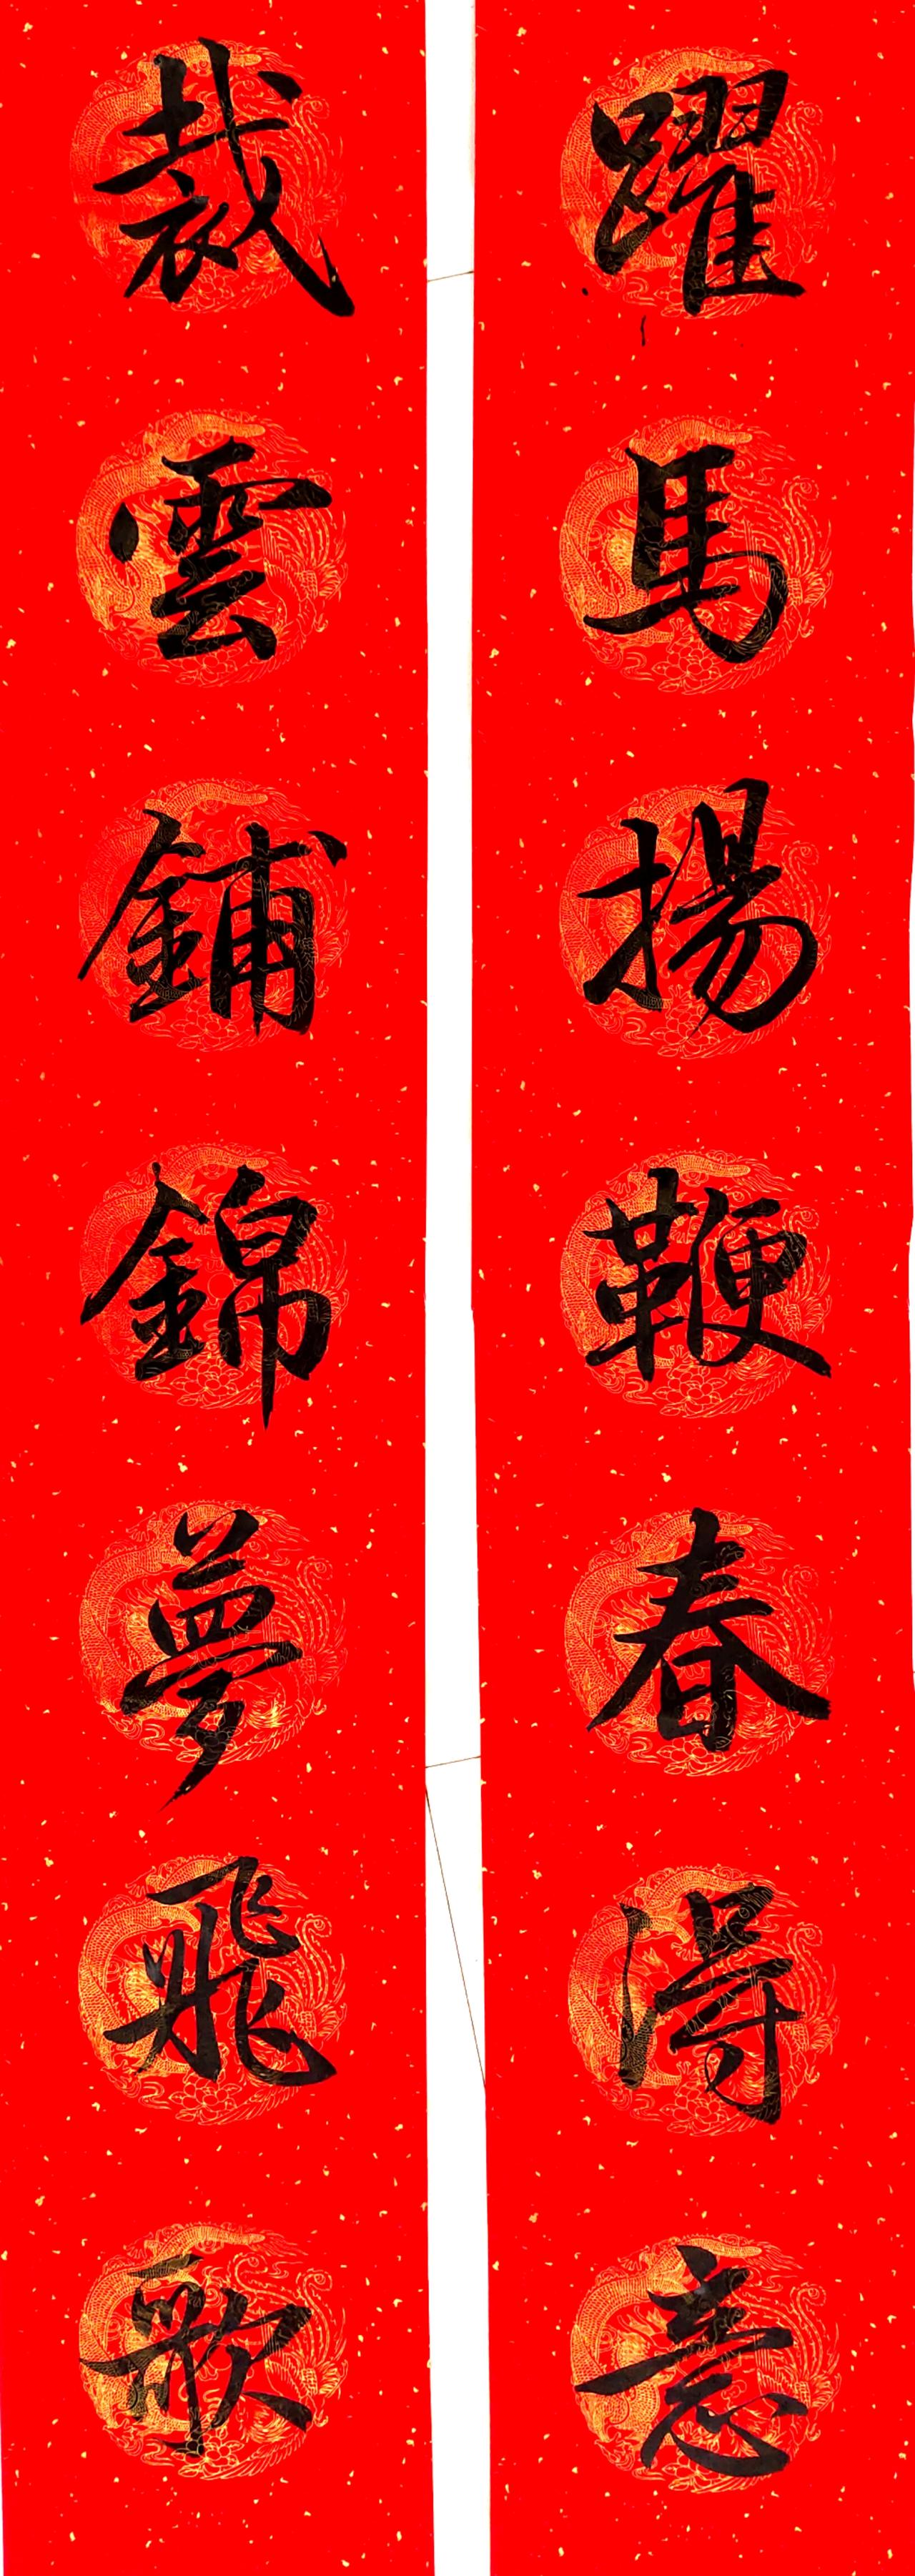 躍馬揚鞭春得意
裁雲鋪錦夢飛歌